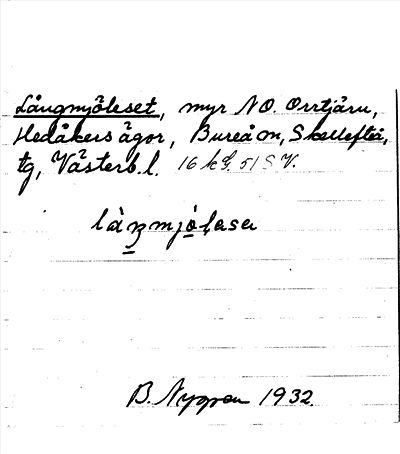 Långmjöleset, myr NO. Orrtjärn,
Hedåkers ägor, Bureå m, Skellefteå,
tg, Västerb. l. 16 k G. 51 S V.
B. Nygren 1932.